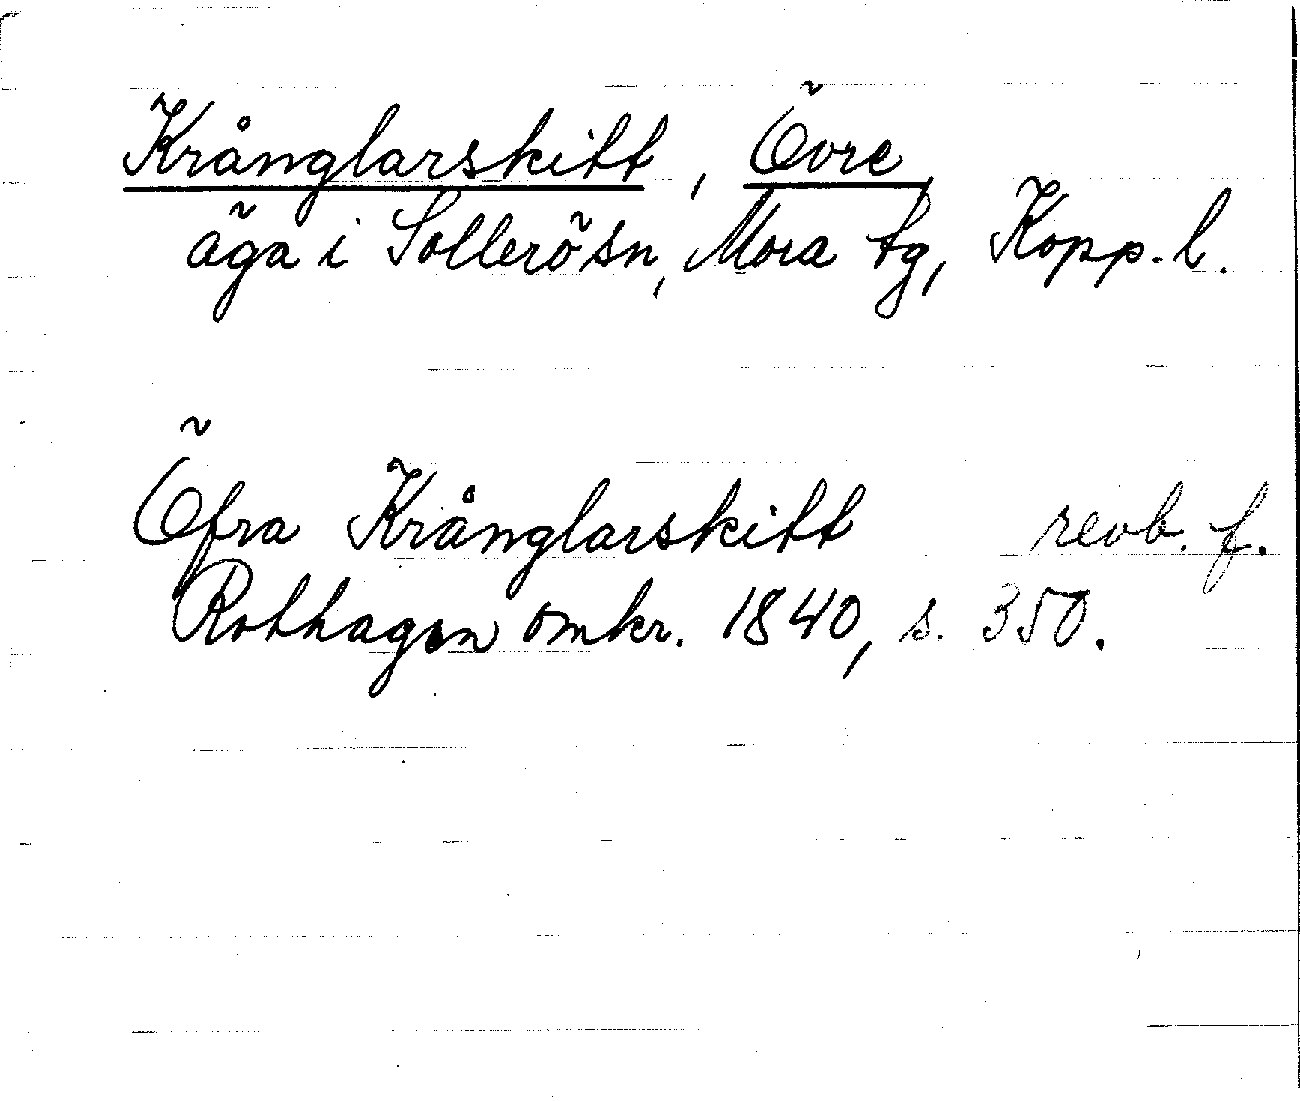 Krånglarskitt, Övre
äga i Sollerö sn, Mora tg, Kopp. l.
Öfra Krånglarskitt revb. f.
Rothagen omkr. 1840, s. 350.